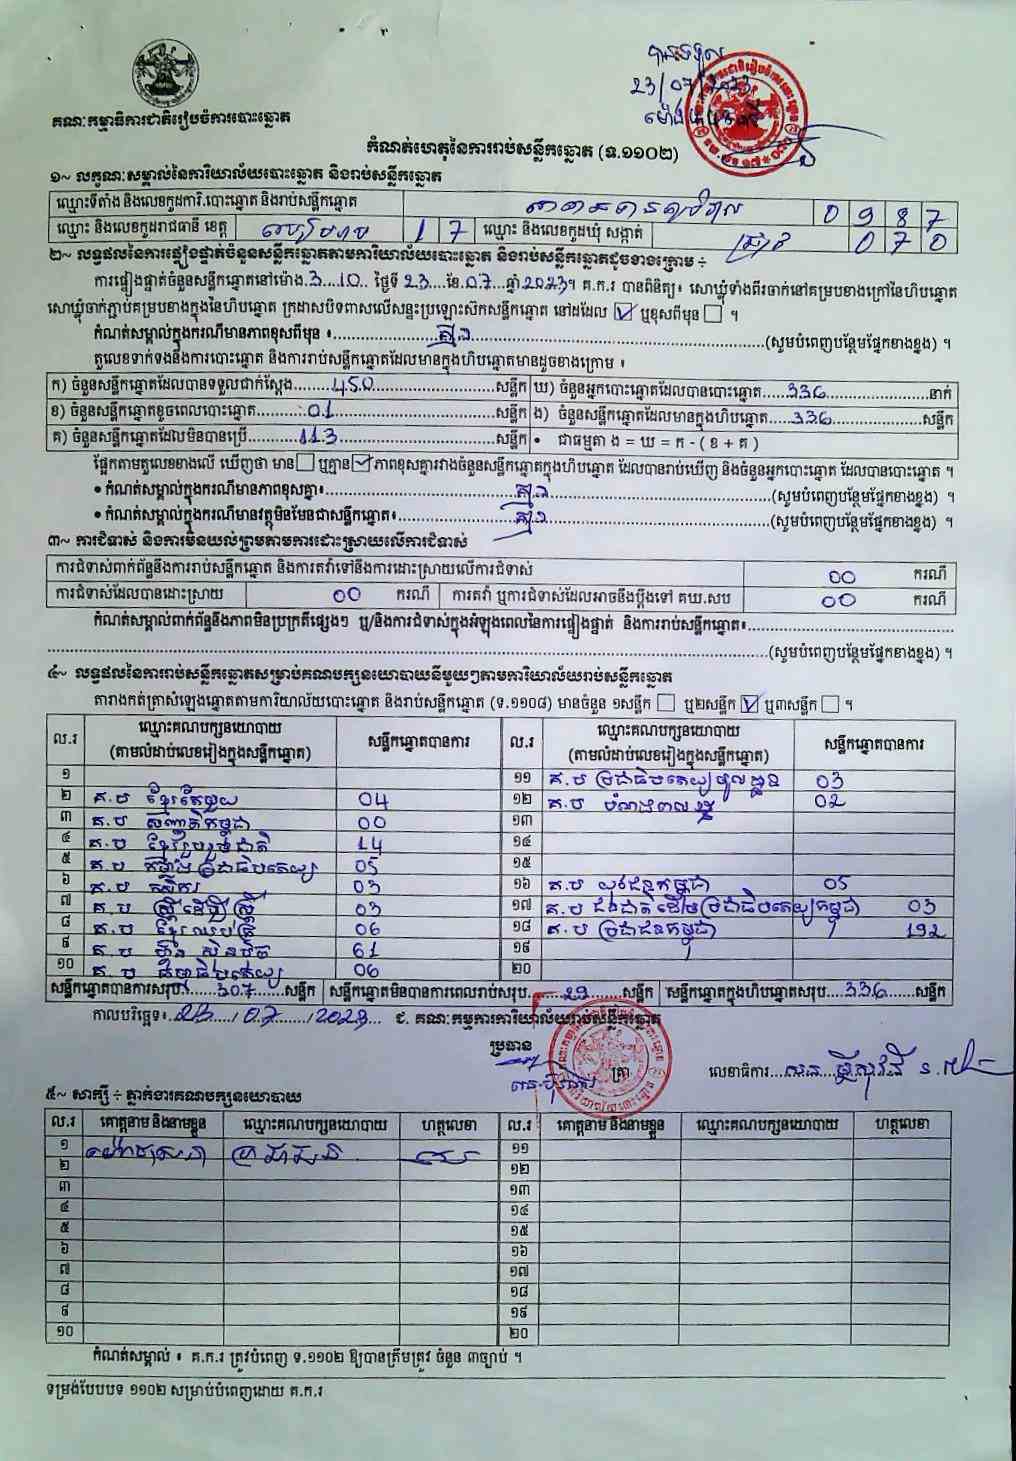 បានទទួល
23/07/2023
គណៈកម្មាធិការជាតិរៀបចំការបោះឆ្នោត
កំណត់ហេតុនៃការរាប់សន្លឹកឆ្នោត (ទ.១១០២)
១~ លក្ខណៈសម្គាល់នៃការិយាល័យបោះឆ្នោត និងរាប់សន្លឹកឆ្នោត
ឈ្មោះទីតាំង និងលេខកូដការិ.បោះឆ្នោត និងរាប់សន្លឹកឆ្នោត 0 9 8 7
ឈ្មោះ និងលេខកូដរាជធានី ខេត្ត សៀមរាប 1 7 ឈ្មោះ និងលេខកូដឃុំ សង្កាត់ 0 7 0
២~ លទ្ធផលនៃការផ្ទៀងផ្ទាត់ចំនួនសន្លឹកឆ្នោតតាមការិយាល័យបោះឆ្នោត និងរាប់សន្លឹកឆ្នោតដូចខាងក្រោម ÷
ការផ្ទៀងផ្ទាត់ចំនួនសន្លឹកឆ្នោតនៅម៉ោង 3:10 ថ្ងៃទី 23 ខែ 07 ឆ្នាំ 2023។ គ.ក.រ បានពិនិត្យ៖ សោឃ្លុំទាំងពីរចាក់នៅគម្របខាងក្រៅនៃហិបឆ្នោត
សោឃ្លុំចាក់ភ្ជាប់គម្របខាងក្នុងនៃហិបឆ្នោត ក្រដាសបិទពាសលើសន្ទះប្រឡោះស៊កសន្លឹកឆ្នោត នៅដដែល ☑ ឬខុសពីមុន ☐ ។
កំណត់សម្គាល់ក្នុងករណីមានភាពខុសពីមុន ៖ គ្មាន (សូមបំពេញបន្ថែមផ្នែកខាងខ្នង) ។
តួលេខទាក់ទងនឹងការបោះឆ្នោត និងការរាប់សន្លឹកឆ្នោតដែលមានក្នុងហិបឆ្នោតមានដូចខាងក្រោម ៖
ក) ចំនួនសន្លឹកឆ្នោតដែលបានទទួលជាក់ស្តែង 450 សន្លឹក ឃ) ចំនួនអ្នកបោះឆ្នោតដែលបានបោះឆ្នោត 336 នាក់
ខ) ចំនួនសន្លឹកឆ្នោតខូចពេលបោះឆ្នោត 01 សន្លឹក ង) ចំនួនសន្លឹកឆ្នោតដែលមានក្នុងហិបឆ្នោត 336 សន្លឹក
គ) ចំនួនសន្លឹកឆ្នោតដែលមិនបានប្រើ 113 សន្លឹក • ជាធម្មតា ង = ឃ = ក - ( ខ + គ )
ផ្អែកតាមតួលេខខាងលើ ឃើញថា មាន ☐ ឬគ្មាន ☑ ភាពខុសគ្នារវាងចំនួនសន្លឹកឆ្នោតក្នុងហិបឆ្នោត ដែលបានរាប់ឃើញ និងចំនួនអ្នកបោះឆ្នោត ដែលបានបោះឆ្នោត ។
• កំណត់សម្គាល់ក្នុងករណីមានភាពខុសគ្នា៖ គ្មាន (សូមបំពេញបន្ថែមផ្នែកខាងខ្នង) ។
• កំណត់សម្គាល់ក្នុងករណីមានវត្ថុមិនមែនជាសន្លឹកឆ្នោត៖ គ្មាន (សូមបំពេញបន្ថែមផ្នែកខាងខ្នង) ។
៣~ ការជំទាស់ និងការមិនយល់ព្រមតាមការដោះស្រាយលើការជំទាស់
ការជំទាស់ពាក់ព័ន្ធនឹងការរាប់សន្លឹកឆ្នោត និងការតវ៉ាទៅនឹងការដោះស្រាយលើការជំទាស់ 00 ករណី
ការជំទាស់ដែលបានដោះស្រាយ 00 ករណី ការតវ៉ា ឬការជំទាស់ដែលអាចនឹងប្តឹងទៅ គឃ.សប 00 ករណី
កំណត់សម្គាល់ពាក់ព័ន្ធនឹងភាពមិនប្រក្រតីផ្សេងៗ ឬ/និងការជំទាស់ក្នុងអំឡុងពេលនៃការផ្ទៀងផ្ទាត់ និងការរាប់សន្លឹកឆ្នោត៖
(សូមបំពេញបន្ថែមផ្នែកខាងខ្នង) ។
៤~ លទ្ធផលនៃការរាប់សន្លឹកឆ្នោតសម្រាប់គណបក្សនយោបាយនីមួយៗតាមការិយាល័យរាប់សន្លឹកឆ្នោត
តារាងកត់ត្រាសំឡេងឆ្នោតតាមការិយាល័យបោះឆ្នោត និងរាប់សន្លឹកឆ្នោត (ទ.១១០៨) មានចំនួន ១សន្លឹក ☐ ឬ២សន្លឹក ☑ ឬ៣សន្លឹក ☐ ។
ល.រ ឈ្មោះគណបក្សនយោបាយ (តាមលំដាប់លេខរៀងក្នុងសន្លឹកឆ្នោត) សន្លឹកឆ្នោតបានការ ល.រ ឈ្មោះគណបក្សនយោបាយ (តាមលំដាប់លេខរៀងក្នុងសន្លឹកឆ្នោត) សន្លឹកឆ្នោតបានការ
១ ១១ គ.ប ប្រជាធិបតេយ្យមូលដ្ឋាន 03
២ គ.ប ខ្មែរតែមួយ 04 ១២ គ.ប 02
៣ គ.ប សញ្ជាតិកម្ពុជា 00 ១៣
៤ គ.ប ខ្មែររួបរួមជាតិ 14 ១៤
៥ គ.ប កម្លាំងប្រជាធិបតេយ្យ 05 ១៥
៦ គ.ប កសិករ 03 ១៦ គ.ប យុវជនកម្ពុជា 05
៧ គ.ប ស្ត្រីដើម្បីស្ត្រី 03 ១៧ គ.ប ជនជាតិដើមប្រជាធិបតេយ្យកម្ពុជា 03
៨ គ.ប ខ្មែរឈប់ក្រ 06 ១៨ គ.ប ប្រជាជនកម្ពុជា 192
៩ គ.ប ហ៊្វុនស៊ិនប៉ិច 61 ១៩
១០ គ.ប ធម្មាធិបតេយ្យ 06 ២០
សន្លឹកឆ្នោតបានការសរុប 307 សន្លឹក សន្លឹកឆ្នោតមិនបានការពេលរាប់សរុប 29 សន្លឹក សន្លឹកឆ្នោតក្នុងហិបឆ្នោតសរុប 336 សន្លឹក
កាលបរិច្ឆេទ៖ 23 / 07 / 2023 ជ. គណៈកម្មការការិយាល័យរាប់សន្លឹកឆ្នោត
ប្រធាន
ត្រា លេខាធិការ
៥~ សាក្សី ÷ ភ្នាក់ងារគណបក្សនយោបាយ
ល.រ គោត្តនាម និងនាមខ្លួន ឈ្មោះគណបក្សនយោបាយ ហត្ថលេខា ល.រ គោត្តនាម និងនាមខ្លួន ឈ្មោះគណបក្សនយោបាយ ហត្ថលេខា
១ ប្រជាជន ១១
២ ១២
៣ ១៣
៤ ១៤
៥ ១៥
៦ ១៦
៧ ១៧
៨ ១៨
៩ ១៩
១០ ២០
កំណត់សម្គាល់ ៖ គ.ក.រ ត្រូវបំពេញ ទ.១១០២ ឱ្យបានត្រឹមត្រូវ ចំនួន ៣ច្បាប់ ។
ទម្រង់បែបបទ ១១០២ សម្រាប់បំពេញដោយ គ.ក.រ